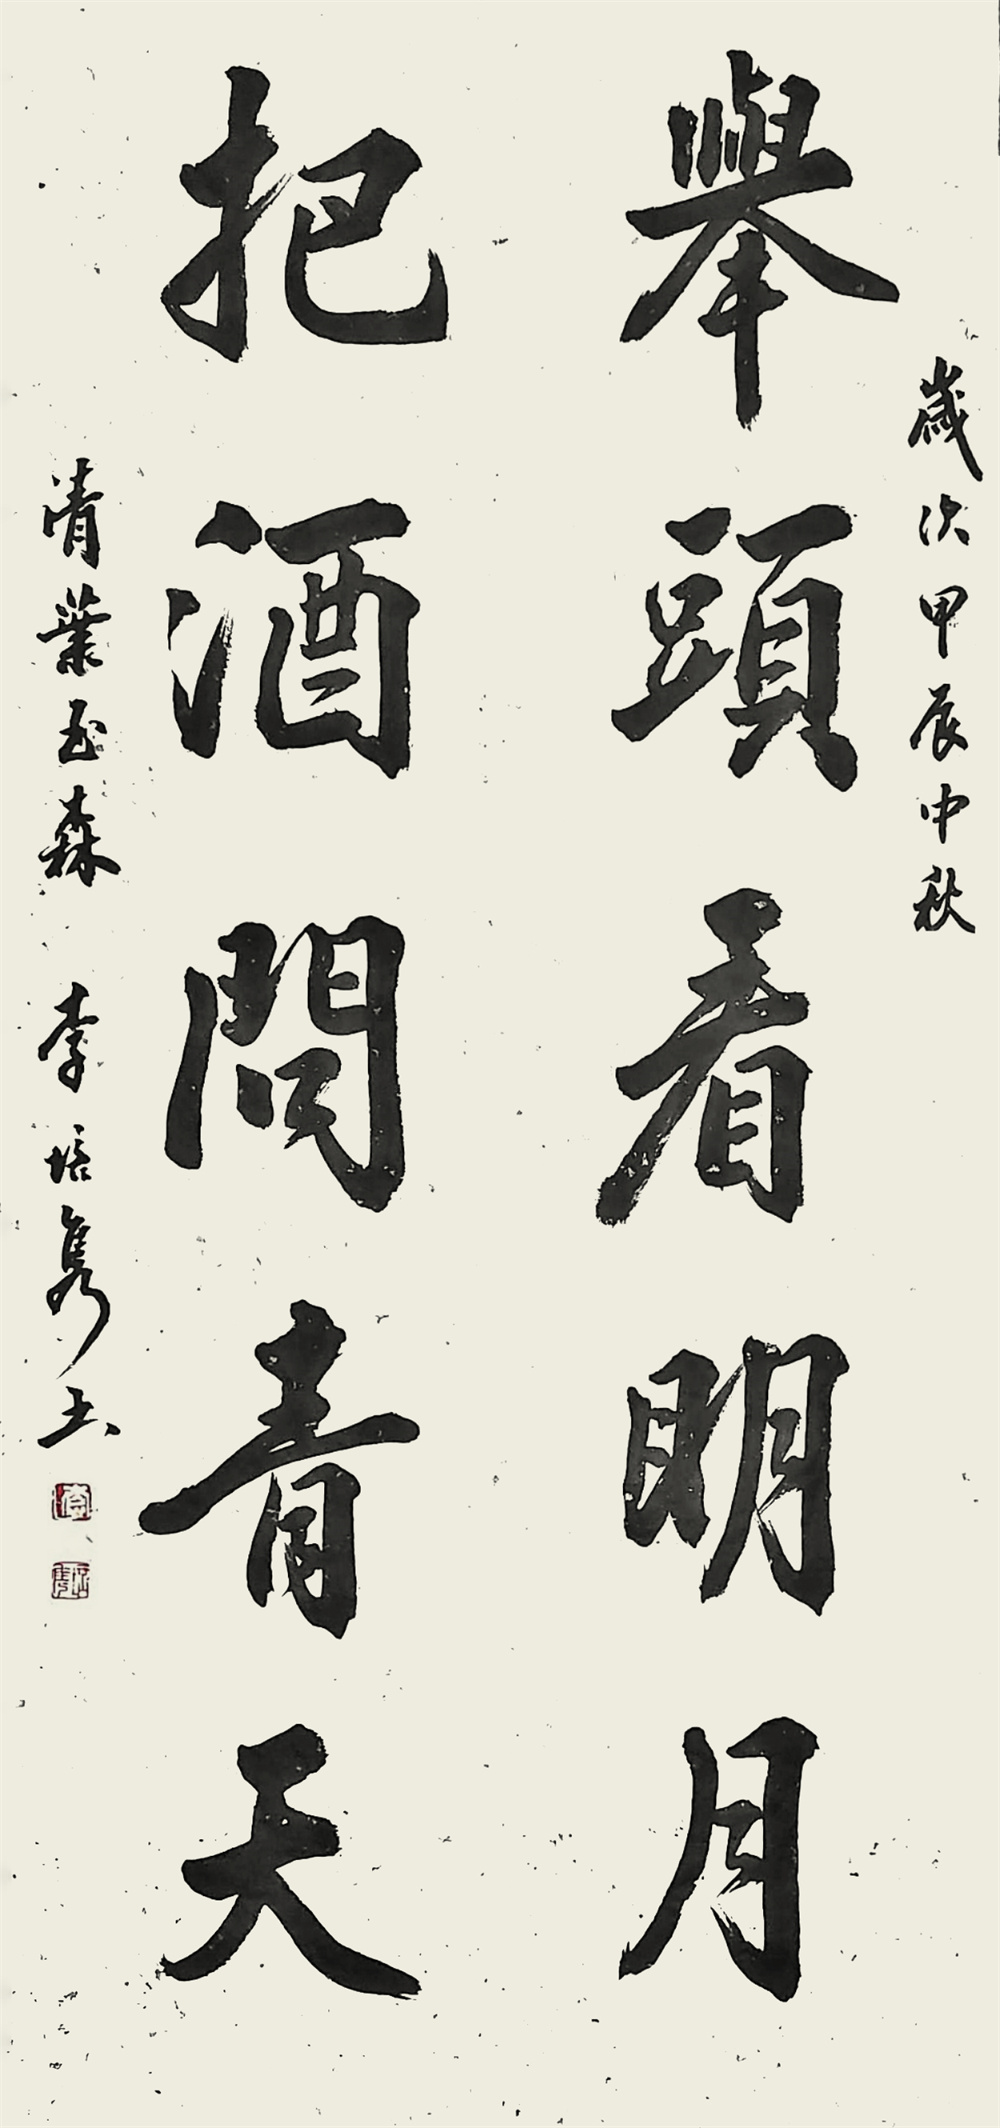 歲次甲辰中秋
舉頭看明月
把酒問青天
清葉玉森 李培隽书